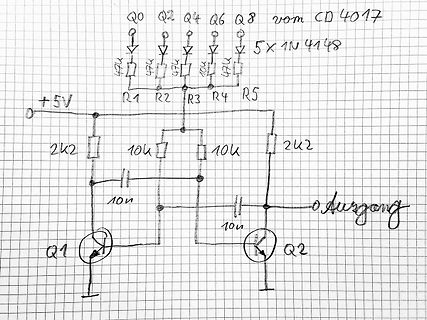 Q0 Q2 Q4 Q6 Q8 vom CD 4017
5 x 1N 4148
47k 47k 47k 47k
R1 R2 R3 R4 R5
+5V
2k2 10k 10k 2k2
10n
Ausgang
10n
Q1 Q2